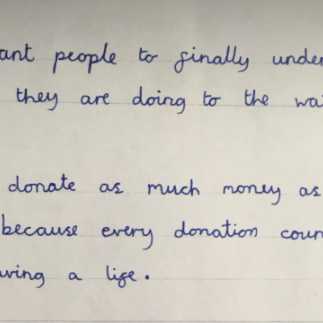 ant people to finally under
they are doing to the wa
donate as much money as
because every donation coun
aving a life.